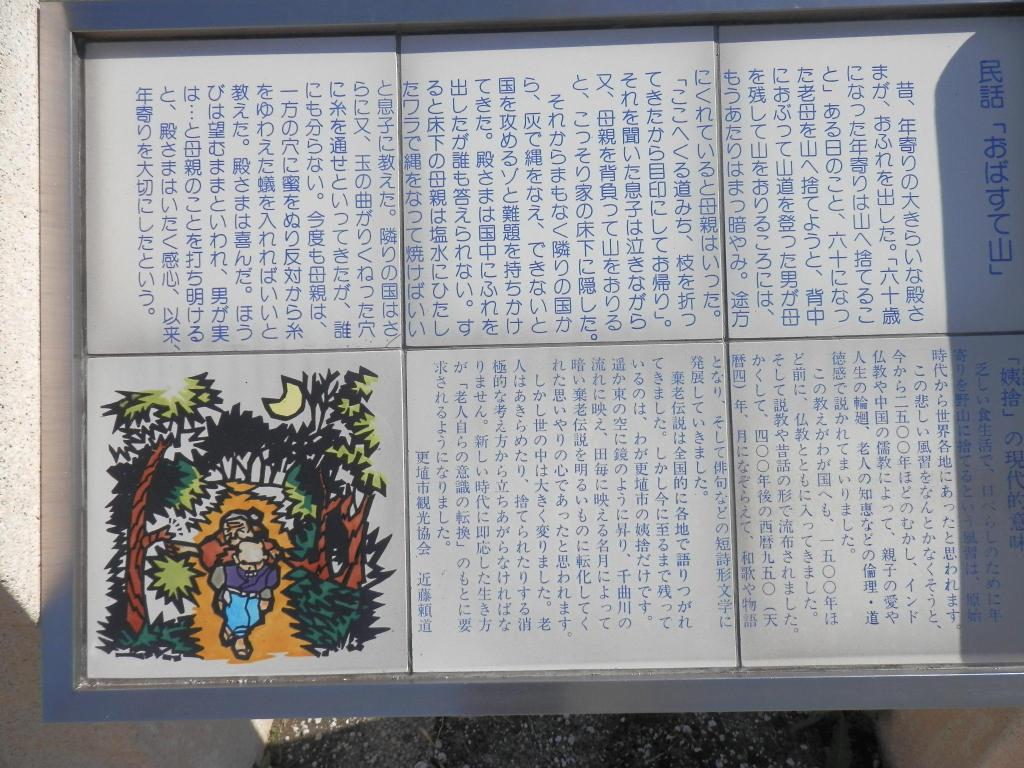 民話「おばすて山」
昔、年寄りの大きらいな殿さ
まが、おふれを出した。「六十歳
になった年寄りは山へ捨てるこ
と」ある日のこと、六十になっ
た老母を山へ捨てようと、背中
におぶって山道を登った男が母
を残して山をおりるころには、
もうあたりはまっ暗やみ。途方
にくれていると母親はいった。
「ここへくる道みち、枝を折っ
てきたから目印にしてお帰り」。
それを聞いた息子は泣きながら
又、母親を背負って山をおりる
と、こっそり家の床下に隠した。
それからまもなく隣りの国か
ら、灰で縄をなえ、できないと
国を攻めるゾと難題を持ちかけ
てきた。殿さまは国中にふれを
出したが誰も答えられない。す
ると床下の母親は塩水にひたし
たワラで縄をなって焼けばいい
と息子に教えた。隣りの国はさ
らに又、玉の曲がりくねった穴
に糸を通せといってきたが、誰
にも分らない。今度も母親は、
一方の穴に蜜をぬり反対から糸
をゆわえた蟻を入れればいいと
教えた。殿さまは喜んだ。ほう
びは望むままといわれ、男が実
は…と母親のことを打ち明ける
と、殿さまはいたく感心、以来、
年寄りを大切にしたという。
「姨捨」の現代的意味
乏しい食生活で、口べらしのために年
寄りを野山に捨てるという風習は、原始
時代から世界各地にあったと思われます。
この悲しい風習をなんとかなくそうと、
今から二五〇〇年ほどのむかし、インド
仏教や中国の儒教によって、親子の愛や
人生の輪廻、老人の知恵などの倫理・道
徳感で説かれてまいりました。
この教えがわが国へも、一五〇〇年ほ
ど前に、仏教とともに入ってきました。
そして説教や昔話の形で流布されました。
かくして、四〇〇年後の西暦九五〇（天
暦四）年、月になぞらえて、和歌や物語
となり、そして俳句などの短詩形文学に
発展していきました。
棄老伝説は全国的に各地で語りつがれ
てきました。しかし今に至るまで残って
いるのは、わが更埴市の姨捨だけです。
遥か東の空に鏡のように昇り、千曲川の
流れに映え、田毎に映える名月によって
暗い棄老伝説を明るいものに転化してく
れた思いやりの心であったと思われます。
しかし世の中は大きく変りました。老
人はあきらめたり、捨てられたりする消
極的な考え方から立ちあがらなければな
りません。新しい時代に即応した生き方
が「老人自らの意識の転換」のもとに要
求されるようになりました。
更埴市観光協会　近藤頼道